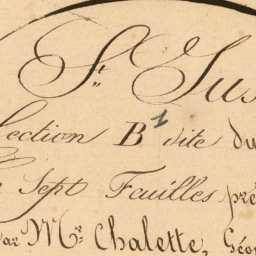 St. Jus
Section B1 dite du
Sept Feuilles pré
par Mr. Chalette, Géo